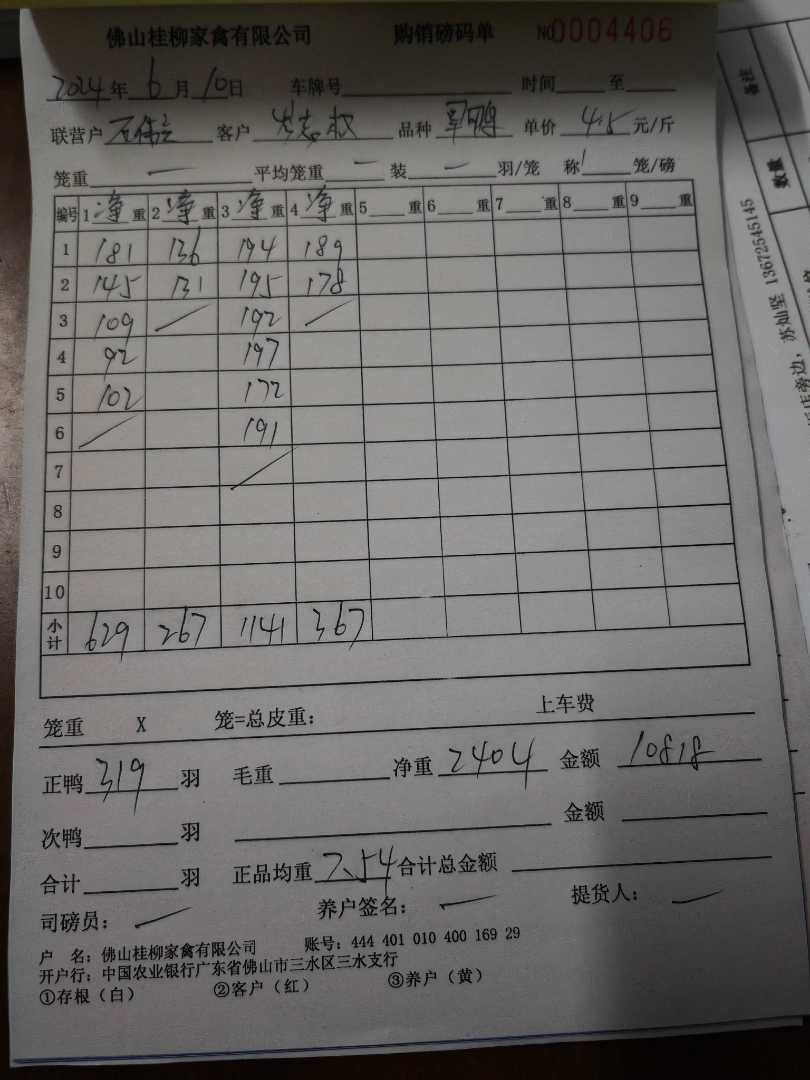 佛山桂柳家禽有限公司 购销磅码单 NO0004406
2024年6月10日 车牌号 时间 至
联营户 客户 品种 单价 4.5 元/斤
笼重 — 平均笼重 — 装 — 羽/笼 称 1 笼/磅
编号 1 净 重 2 净 重 3 净 重 4 净 重 5 重 6 重 7 重 8 重 9 重
1 181 136 194 189
2 145 131 195 178
3 109 / 192 /
4 92 197
5 102 172
6 / 191
7 /
8
9
10
小计 629 267 1141 367
笼重 X 笼=总皮重: 上车费
正鸭 319 羽 毛重 净重 2404 金额 10818
次鸭 羽 金额
合计 羽 正品均重 7.54 合计总金额
司磅员: — 养户签名: — 提货人: —
户 名: 佛山桂柳家禽有限公司 账号: 444 401 010 400 169 29
开户行: 中国农业银行广东省佛山市三水区三水支行
①存根(白) ②客户(红) ③养户(黄)
备注
数量
苏灿坚 13672545145